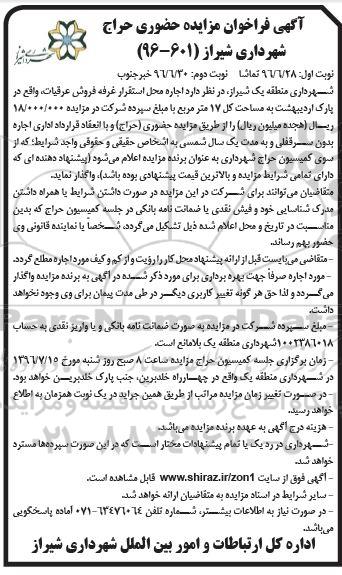 آگهی فراخوان مزایده حضوری حراج
شهرداری شیراز (۶۰۱-۹۶)
نوبت اول: ۹۶/۶/۲۸ تماشا نوبت دوم: ۹۶/۶/۳۰ خبرجنوب
شهرداری منطقه یک شیراز، در نظر دارد اجاره محل استقرار غرفه فروش عرقیات، واقع در
پارک اردیبهشت به مساحت کل ۱۷ متر مربع با مبلغ سپرده شرکت در مزایده ۱۸/۰۰۰/۰۰۰
ریال (هجده میلیون ریال) را از طریق مزایده حضوری (حراج) و با انعقاد قرارداد اداری اجاره
بدون سرقفلی و به مدت یک سال شمسی به اشخاص حقیقی و حقوقی واجد شرایط؛ که از
سوی کمیسیون حراج شهرداری به عنوان برنده مزایده اعلام می‌شود (پیشنهاد دهنده ای که
دارای تمامی شرایط مزایده و بالاترین قیمت پیشنهادی بوده باشد)، واگذار نماید.
متقاضیان می‌توانند برای شرکت در این مزایده در صورت داشتن شرایط یا همراه داشتن
مدرک شناسایی خود و فیش نقدی یا ضمانت نامه بانکی در جلسه کمیسیون حراج که بدین
مناسبت در تاریخ و محل اعلام شده ذیل تشکیل می‌گردد، شخصا یا نماینده قانونی وی
حضور بهم رساند.
- متقاضی می‌بایست قبل از ارائه پیشنهاد محل کار را رؤیت و از کم و کیف مورد اجاره مطلع گردد.
- مورد اجاره صرفاً جهت بهره برداری برای مورد ذکر شده در آگهی به برنده مزایده واگذار
می‌گردد و لذا حق هر گونه تغییر کاربری دیگر در طی مدت پیمان برای وی وجود نخواهد
داشت.
- مبلغ سپرده شرکت در مزایده به صورت ضمانت نامه بانکی و یا واریز نقدی به حساب
۱۰۰۲۳۸۶۰۱۸ شهرداری منطقه یک بلامانع است.
- زمان برگزاری جلسه کمیسیون حراج مزایده ساعت ۸ صبح روز شنبه مورخ ۱۳۹۶/۷/۱۵
در شهرداری منطقه یک واقع در چهارراه خلدبرین، جنب پارک خلدبرین خواهد بود.
- در صورت تغییر زمان مزایده مراتب از طریق همین جراید در یک نوبت همزمان به اطلاع
خواهد رسید.
- هزینه درج آگهی به عهده برنده مزایده می‌باشد.
- شهرداری در رد یک یا تمام پیشنهادات مختار است که در این صورت سپرده‌ها مسترد
خواهد شد.
- آگهی فوق از سایت www.shiraz.ir/zon1 قابل مشاهده است.
- سایر شرایط در اسناد مزایده به متقاضیان ارائه خواهد شد.
- در صورت نیاز به اطلاعات بیشتر، شماره تلفن ۶۳۴۷۶۰۶۴-۰۷۱ آماده پاسخگویی
می‌باشد.
اداره کل ارتباطات و امور بین الملل شهرداری شیراز